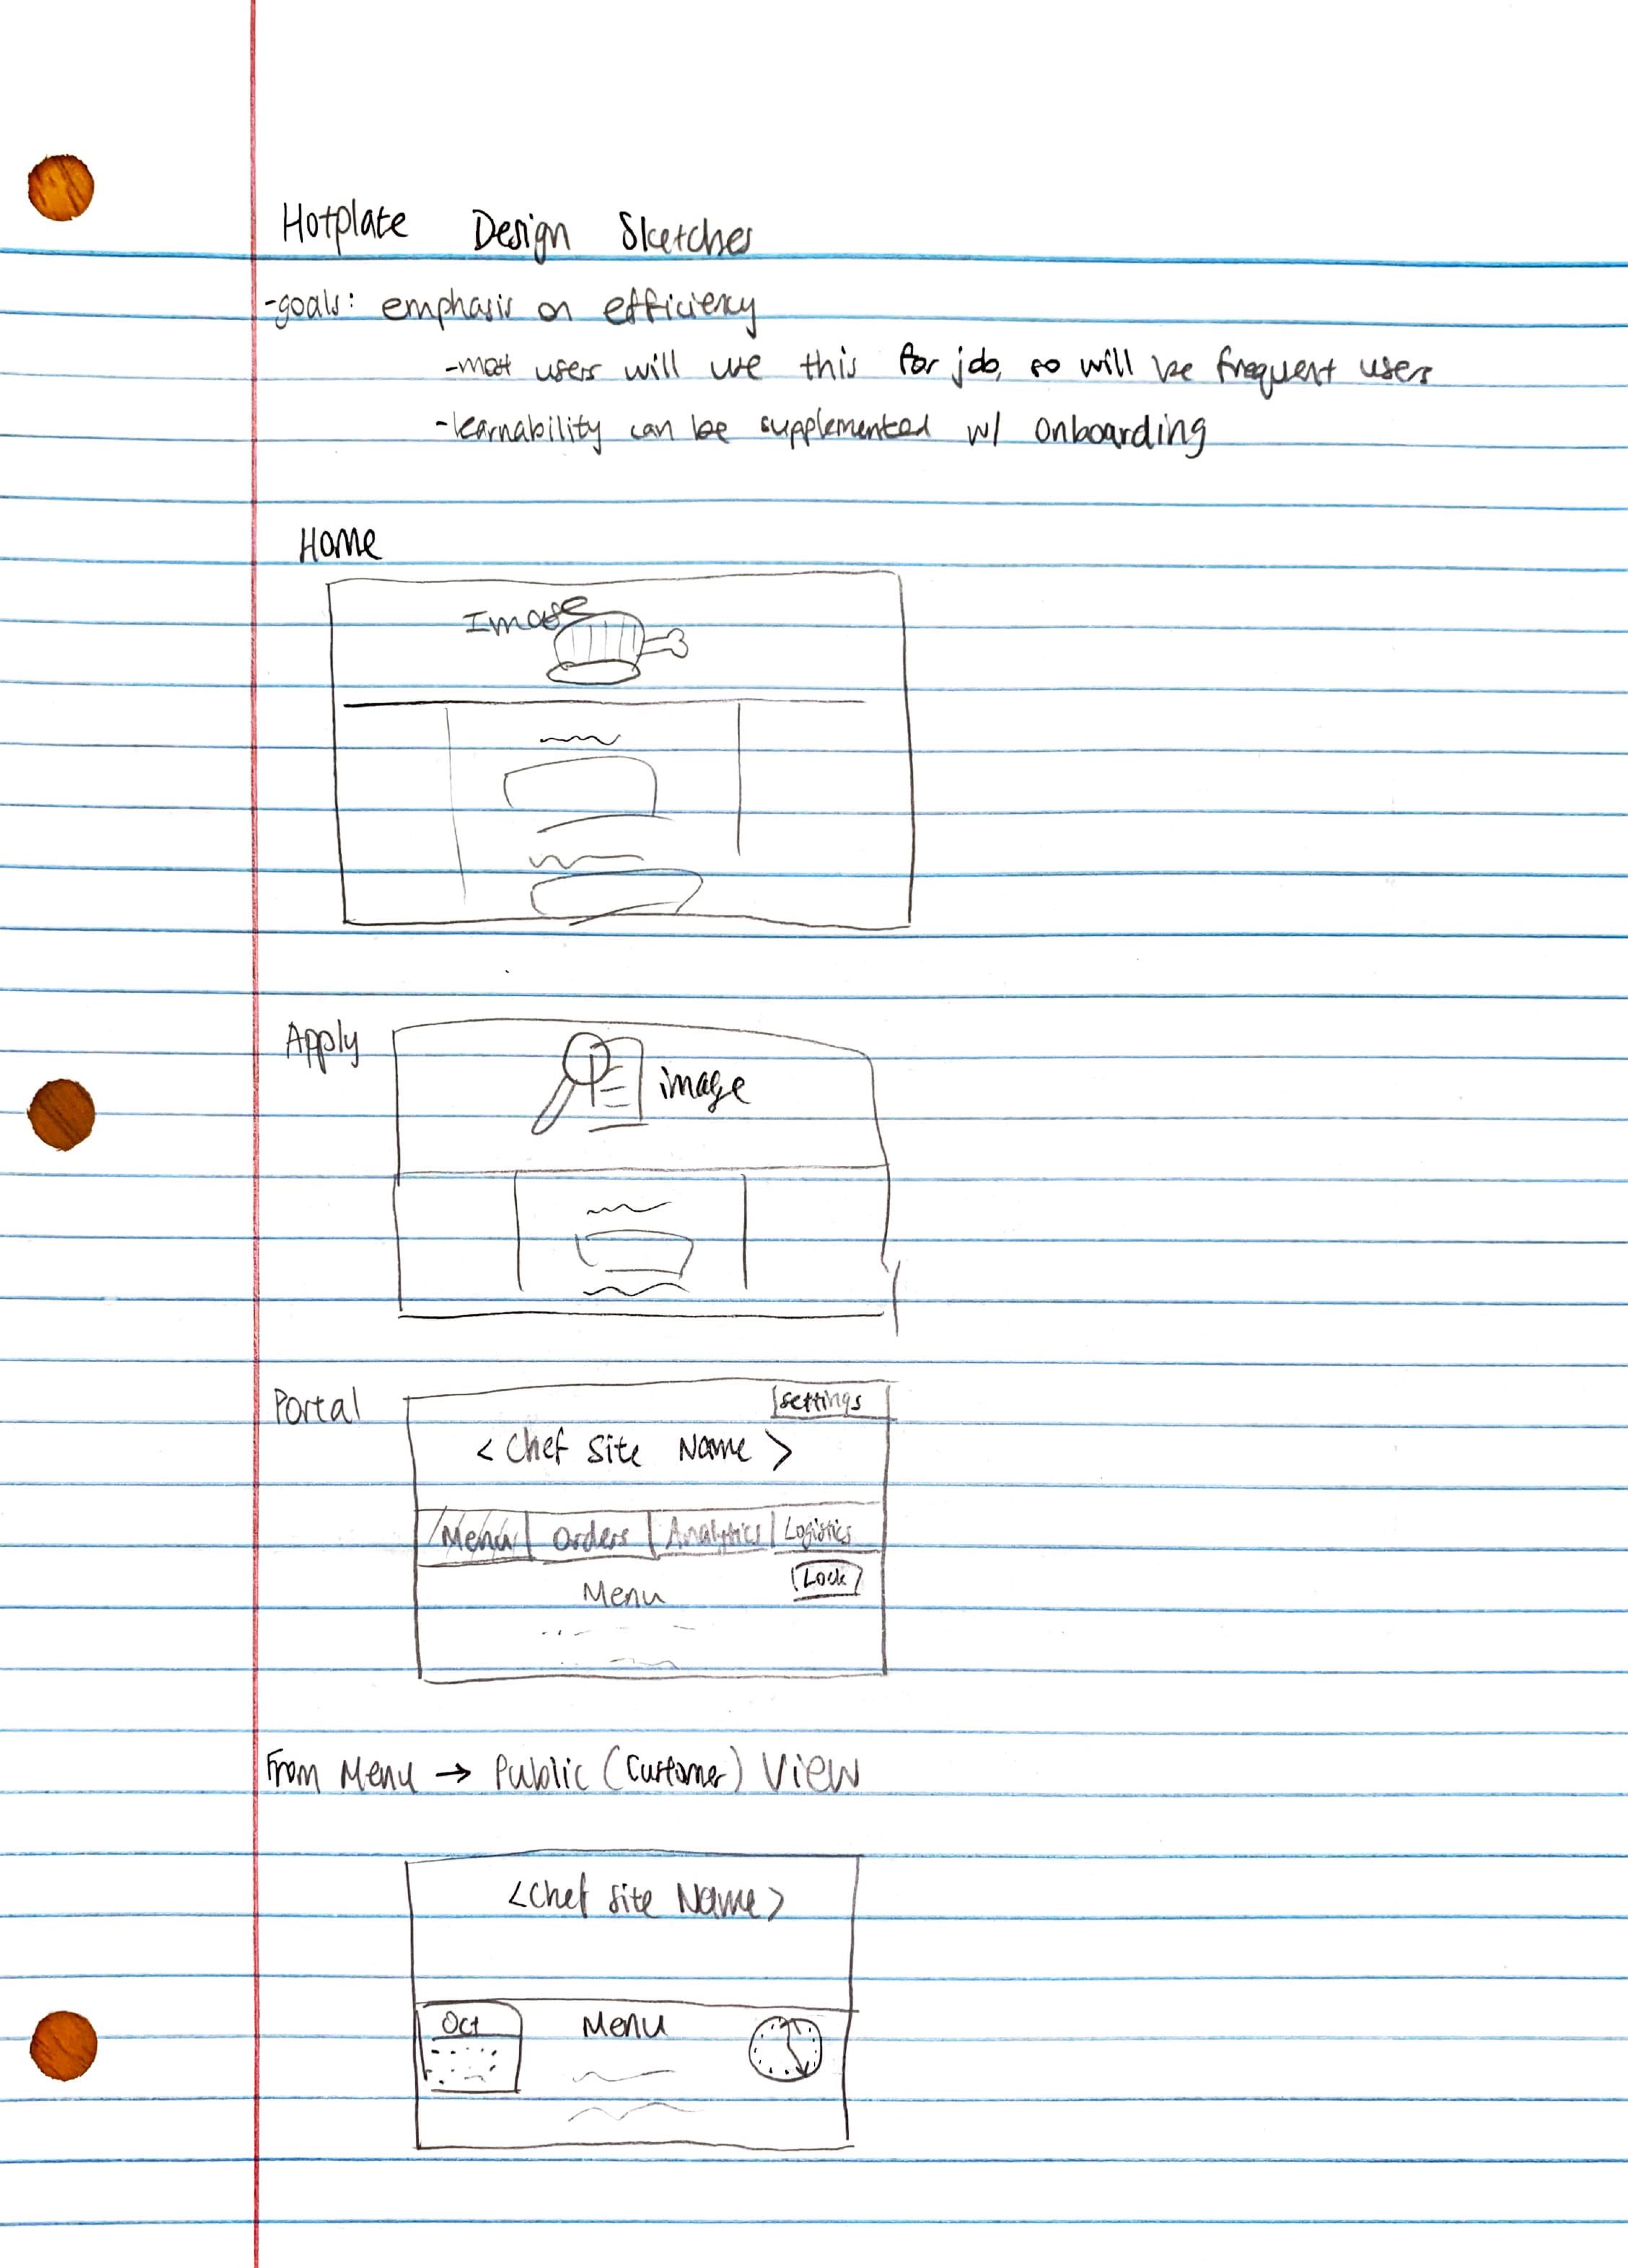 Hotplate Design Sketches
-goals: emphasis on efficiency
-most users will use this for job, so will be frequent users
-learnability can be supplemented w/ onboarding
Home
Image
Apply
image
Portal
settings
<Chef Site Name>
Menu Orders Analytics Logistics
Menu
Lock
From Menu → Public (Customer) View
<Chef Site Name>
Oct
Menu